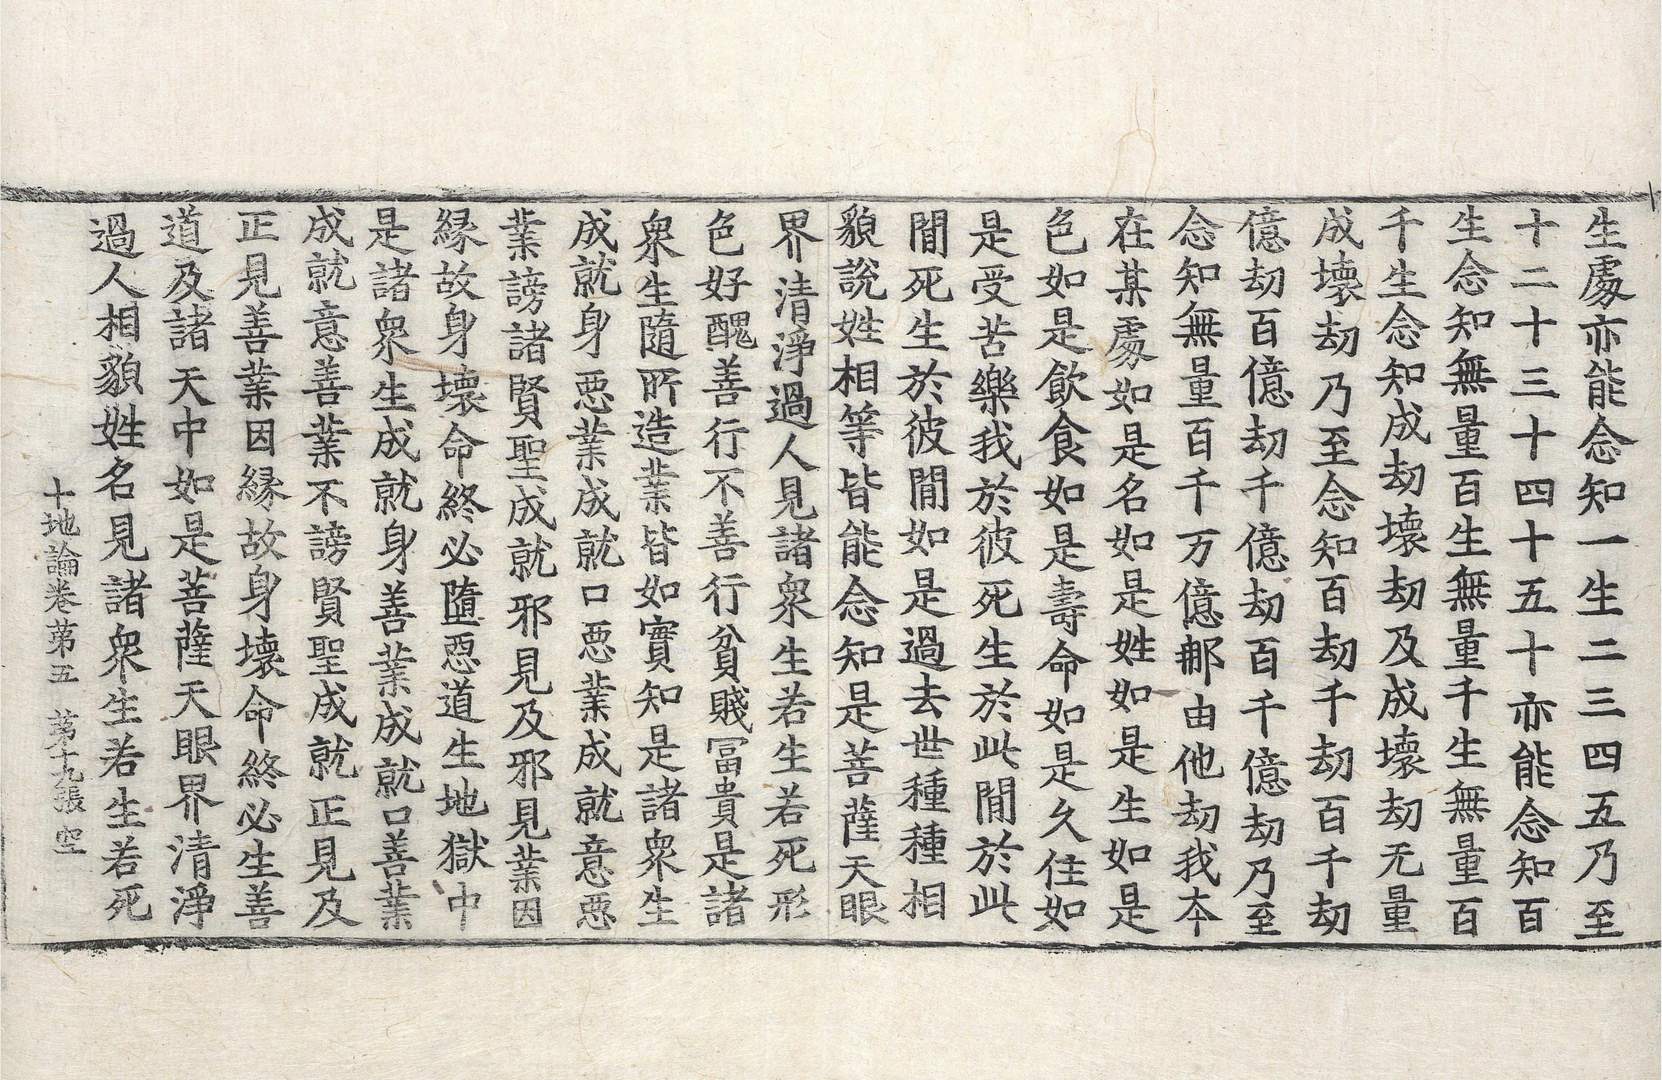 生處亦能念知一生二三四五乃至
十二十三十四十五十亦能念知百
生念知無量百生無量千生無量百
千生念知成劫壞劫及成壞劫无量
成壞劫乃至念知百劫千劫百千劫
億劫百億劫千億劫百千億劫乃至
念知無量百千万億那由他劫我夲
在某處如是名如是姓如是生如是
色如是飲食如是壽命如是久住如
是受苦樂我於彼死生於此間於此
間死生於彼間如是過去世種種相
貌說姓相等皆能念知是菩薩天眼
界清淨過人見諸衆生若生若死形
色好醜善行不善行貧賤冨貴是諸
衆生隨所造業皆如實知是諸衆生
成就身惡業成就口惡業成就意惡
業謗諸賢聖成就邪見及邪見業因
縁故身壞命終必墮惡道生地獄中
是諸衆生成就身善業成就口善業
成就意善業不謗賢聖成就正見及
正見善業因縁故身壞命終必生善
道及諸天中如是菩薩天眼界清淨
過人相貌姓名見諸衆生若生若死
十地論卷苐五 苐十九張 空